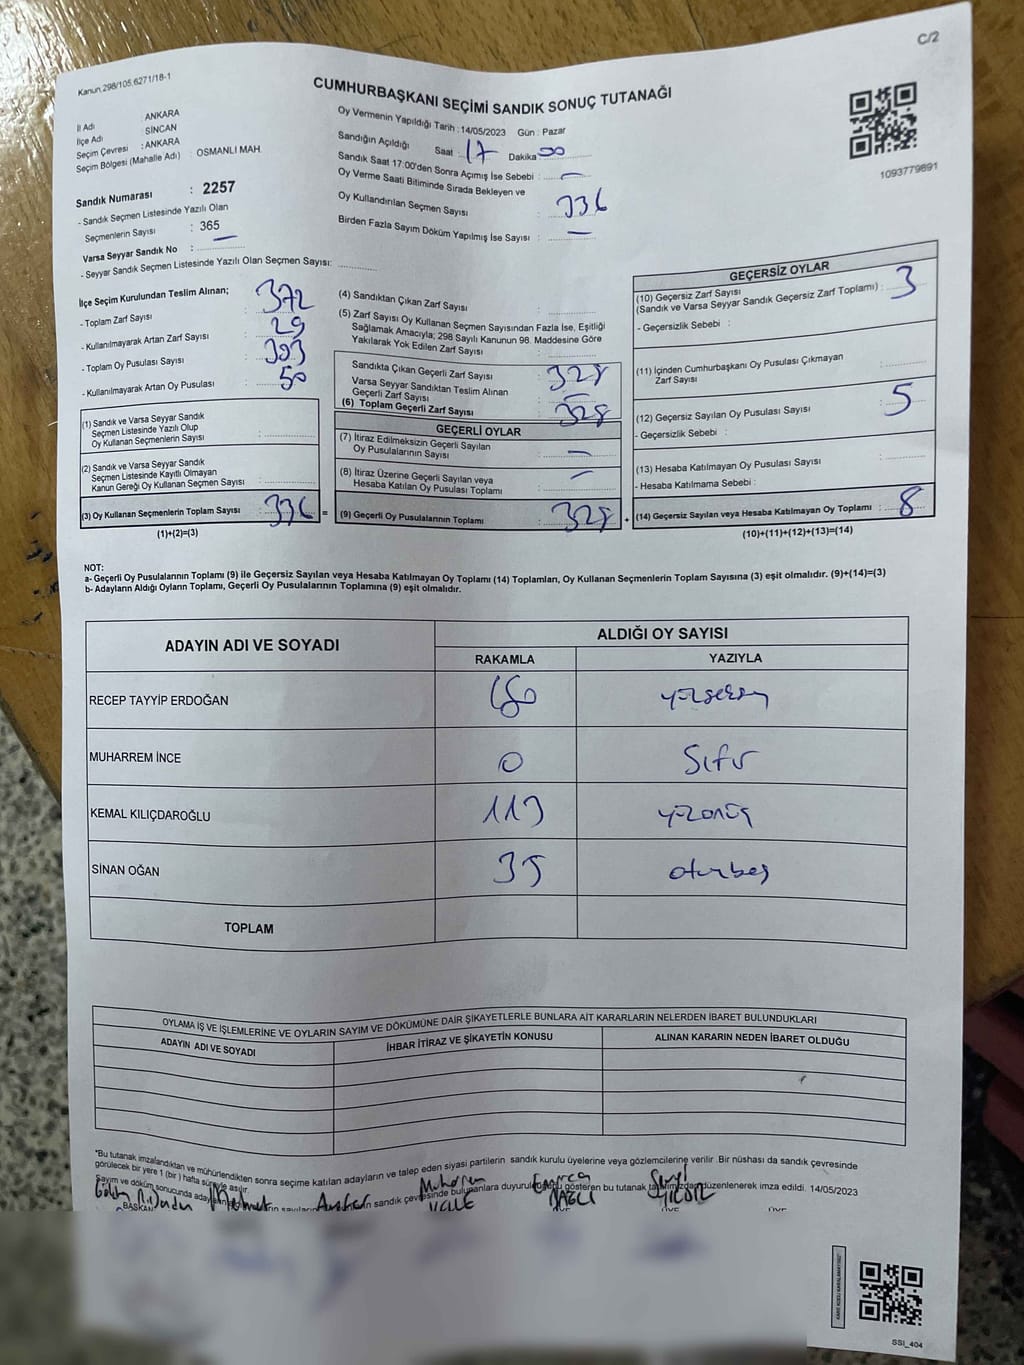 C/2
Kanun.298/105.6271/18-1
CUMHURBAŞKANI SEÇİMİ SANDIK SONUÇ TUTANAĞI
İl Adı : ANKARA
İlçe Adı : SİNCAN
Seçim Çevresi : ANKARA
Seçim Bölgesi (Mahalle Adı) : OSMANLI MAH.
Sandık Numarası : 2257
- Sandık Seçmen Listesinde Yazılı Olan
Seçmenlerin Sayısı : 365
Varsa Seyyar Sandık No :
- Seyyar Sandık Seçmen Listesinde Yazılı Olan Seçmen Sayısı:
Oy Vermenin Yapıldığı Tarih :14/05/2023 Gün : Pazar
Sandığın Açıldığı Saat : 17 Dakika 00
Sandık Saat 17:00'den Sonra Açımış İse Sebebi : -
Oy Verme Saati Bitiminde Sırada Bekleyen ve
Oy Kullandırılan Seçmen Sayısı : 336
Birden Fazla Sayım Döküm Yapılmış İse Sayısı : -
1093779891
İlçe Seçim Kurulundan Teslim Alınan;
- Toplam Zarf Sayısı : 372
- Kullanılmayarak Artan Zarf Sayısı : 29
- Toplam Oy Pusulası Sayısı : 393
- Kullanılmayarak Artan Oy Pusulası : 50
(1) Sandık ve Varsa Seyyar Sandık
Seçmen Listesinde Yazılı Olup
Oy Kullanan Seçmenlerin Sayısı :
(2) Sandık ve Varsa Seyyar Sandık
Seçmen Listesinde Kayıtlı Olmayan
Kanun Gereği Oy Kullanan Seçmen Sayısı :
(3) Oy Kullanan Seçmenlerin Toplam Sayısı : 336 =
(1)+(2)=(3)
(4) Sandıktan Çıkan Zarf Sayısı :
(5) Zarf Sayısı Oy Kullanan Seçmen Sayısından Fazla İse, Eşitliği
Sağlamak Amacıyla; 298 Sayılı Kanunun 98. Maddesine Göre
Yakılarak Yok Edilen Zarf Sayısı :
Sandıkta Çıkan Geçerli Zarf Sayısı : 328
Varsa Seyyar Sandıktan Teslim Alınan
Geçerli Zarf Sayısı : -
(6) Toplam Geçerli Zarf Sayısı : 328
GEÇERLİ OYLAR
(7) İtiraz Edilmeksizin Geçerli Sayılan
Oy Pusulalarının Sayısı : -
(8) İtiraz Üzerine Geçerli Sayılan veya
Hesaba Katılan Oy Pusulası Toplamı : -
(9) Geçerli Oy Pusulalarının Toplamı : 328 +
GEÇERSİZ OYLAR
(10) Geçersiz Zarf Sayısı
(Sandık ve Varsa Seyyar Sandık Geçersiz Zarf Toplamı) : 3
- Geçersizlik Sebebi :
(11) İçinden Cumhurbaşkanı Oy Pusulası Çıkmayan
Zarf Sayısı :
(12) Geçersiz Sayılan Oy Pusulası Sayısı : 5
- Geçersizlik Sebebi :
(13) Hesaba Katılmayan Oy Pusulası Sayısı :
- Hesaba Katılmama Sebebi :
(14) Geçersiz Sayılan veya Hesaba Katılmayan Oy Toplamı : 8
(10)+(11)+(12)+(13)=(14)
NOT:
a- Geçerli Oy Pusulalarının Toplamı (9) ile Geçersiz Sayılan veya Hesaba Katılmayan Oy Toplamı (14) Toplamları, Oy Kullanan Seçmenlerin Toplam Sayısına (3) eşit olmalıdır. (9)+(14)=(3)
b- Adayların Aldığı Oyların Toplamı, Geçerli Oy Pusulalarının Toplamına (9) eşit olmalıdır.
ADAYIN ADI VE SOYADI ALDIĞI OY SAYISI
RAKAMLA YAZIYLA
RECEP TAYYİP ERDOĞAN 180 yüzseksen
MUHARREM İNCE 0 Sıfır
KEMAL KILIÇDAROĞLU 113 yüzonüç
SİNAN OĞAN 35 otuzbeş
TOPLAM
OYLAMA İŞ VE İŞLEMLERİNE VE OYLARIN SAYIM VE DÖKÜMÜNE DAİR ŞİKAYETLERLE BUNLARA AİT KARARLARIN NELERDEN İBARET BULUNDUKLARI
ADAYIN ADI VE SOYADI İHBAR İTİRAZ VE ŞİKAYETİN KONUSU ALINAN KARARIN NEDEN İBARET OLDUĞU
"Bu tutanak imzalandıktan ve mühürlendikten sonra seçime katılan adayların ve talep eden siyasi partilerin sandık kurulu üyelerine veya gözlemcilerine verilir. Bir nüshası da sandık çevresinde
görülecek bir yere 1 (bir) hafta süreyle asılır.
Sayım ve döküm sonucunda sandık çevresinde bulunanlara gösteren bu tutanak düzenlenerek imza edildi. 14/05/2023
Mehmet Muharrem
BAŞKAN
SSI_404